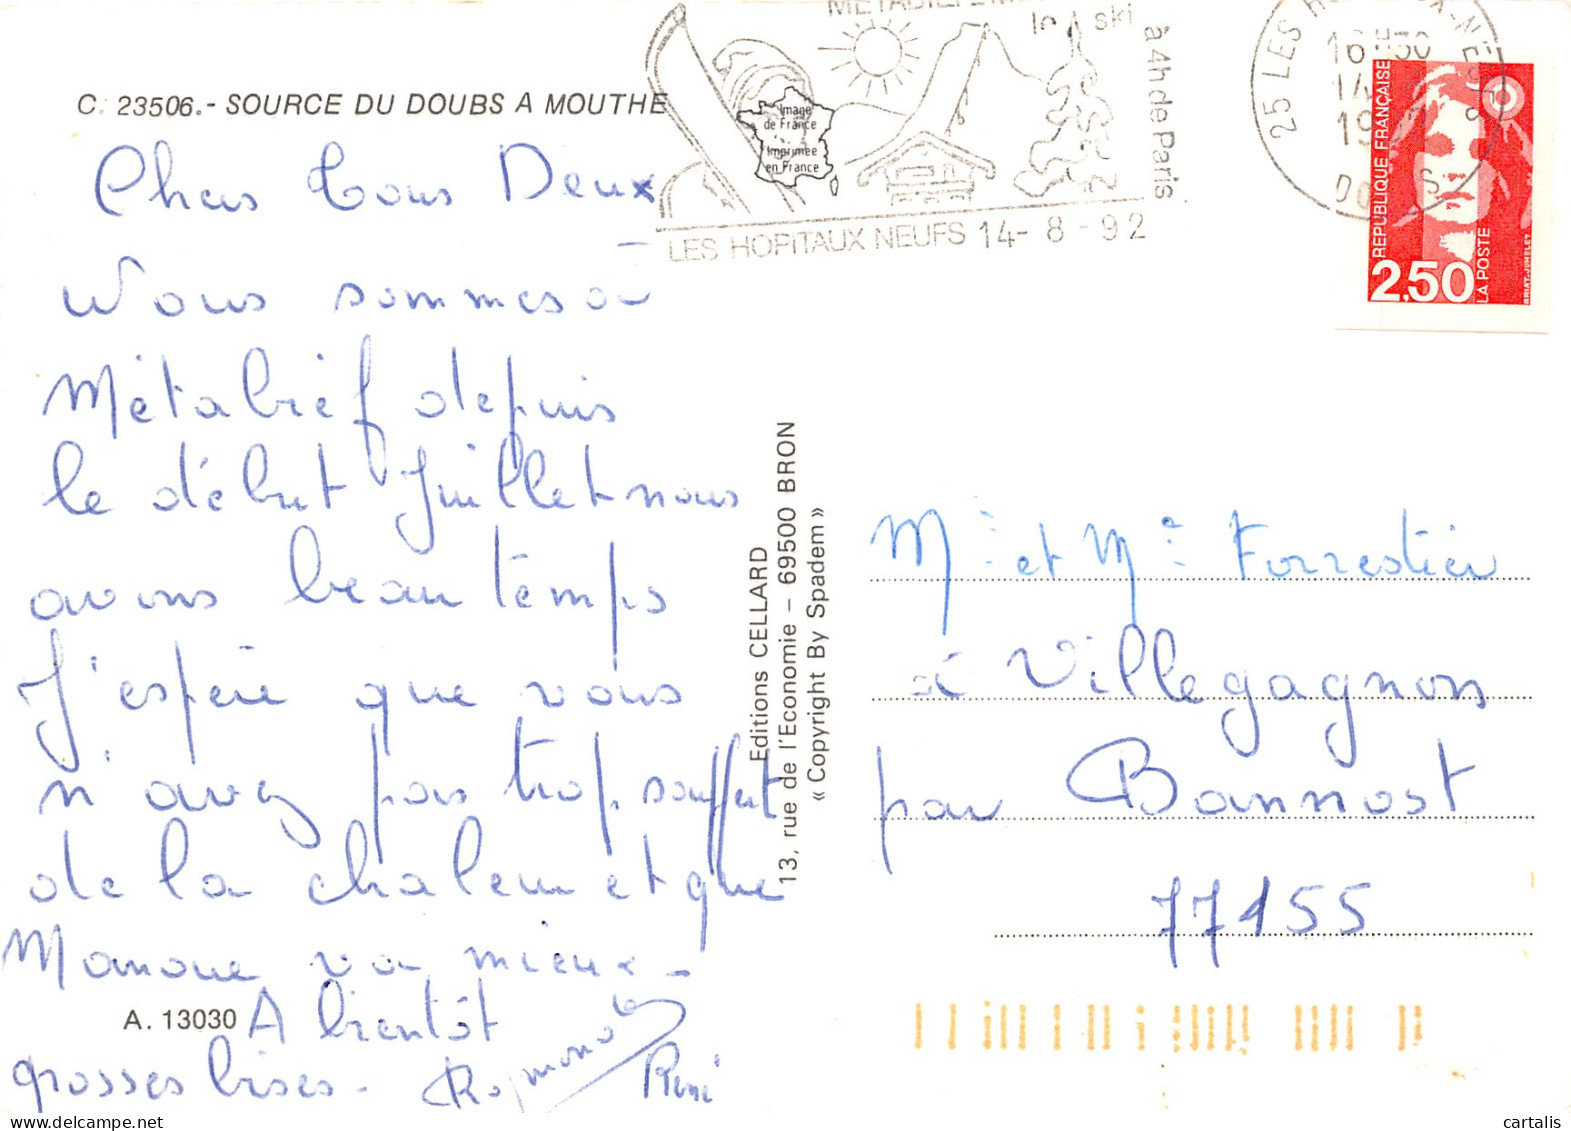 C. 23506.- SOURCE DU DOUBS A MOUTHE
Chers tous Deux
Nous sommes à
Métabief depuis
le début Juillet nous
avons beau temps
J'espère que vous
n'avez pas trop souffert
de la chaleur et que
Manoue va mieux -
A. 13030
A bientôt
grosses bises -
René
Editions CELLARD
13, rue de l'Economie – 69500 BRON
« Copyright By Spadem »
le ski
à 4h de Paris
Image
de France
Imprimée
en France
LES HOPITAUX NEUFS 14- 8 - 92
25 LES
16H30
REPUBLIQUE FRANÇAISE
2,50
LA POSTE
Mr et Me Forrestier
à Villegagnon
par Bannost
77155
cartalis.com